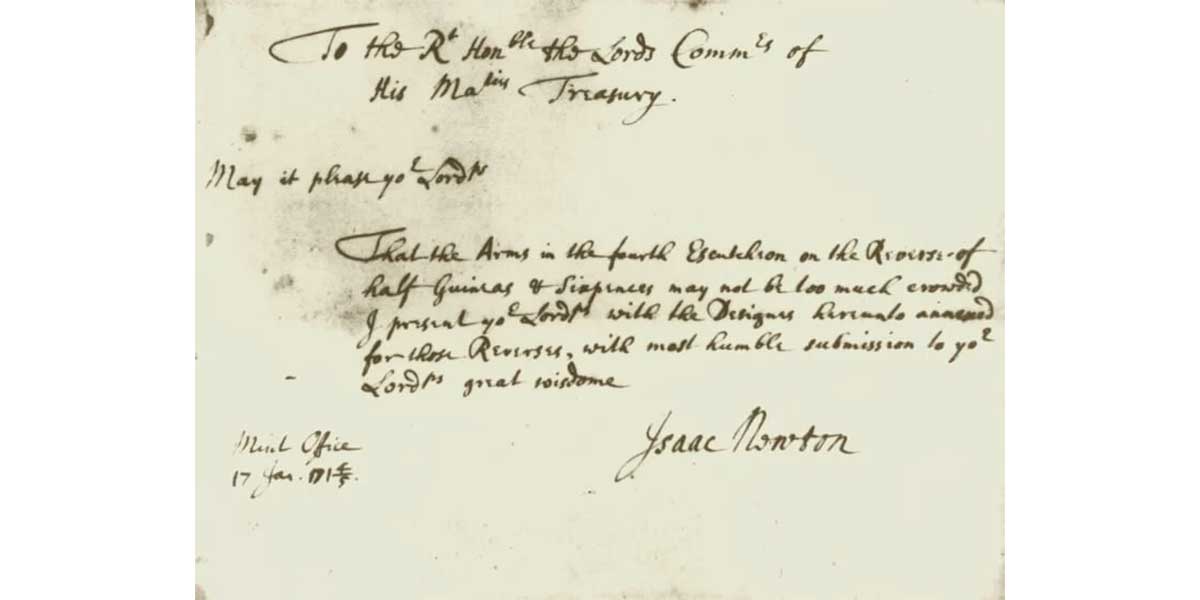 To the Rt Honble the Lords Commrs of
His Maties Treasury.
May it please yor Lordps
That the Arms in the fourth Escutcheon on the Reverse of
half Guineas & Sixpences may not be too much crowded
I present yor Lordps with the Designes hereunto annexed
for those Reverses, with most humble submission to yor
Lordps great wisdome
Isaac Newton
Mint Office
17 Jan. 171⁴⁄₅.